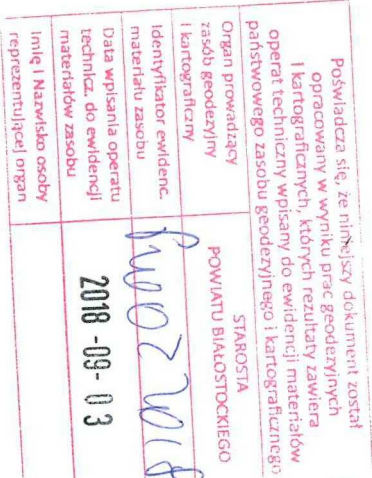 Poświadcza się, że niniejszy dokument został
opracowany w wyniku prac geodezyjnych
i kartograficznych, których rezultaty zawiera
operat techniczny wpisany do ewidencji materiałów
państwowego zasobu geodezyjnego i kartograficznego
Organ prowadzący
zasób geodezyjny
i kartograficzny
STAROSTA
POWIATU BIAŁOSTOCKIEGO
Identyfikator ewidenc.
materiału zasobu
Data wpisania operatu
technicz. do ewidencji
materiałów zasobu
2018 -09- 03
Imię i Nazwisko osoby
reprezentującej organ